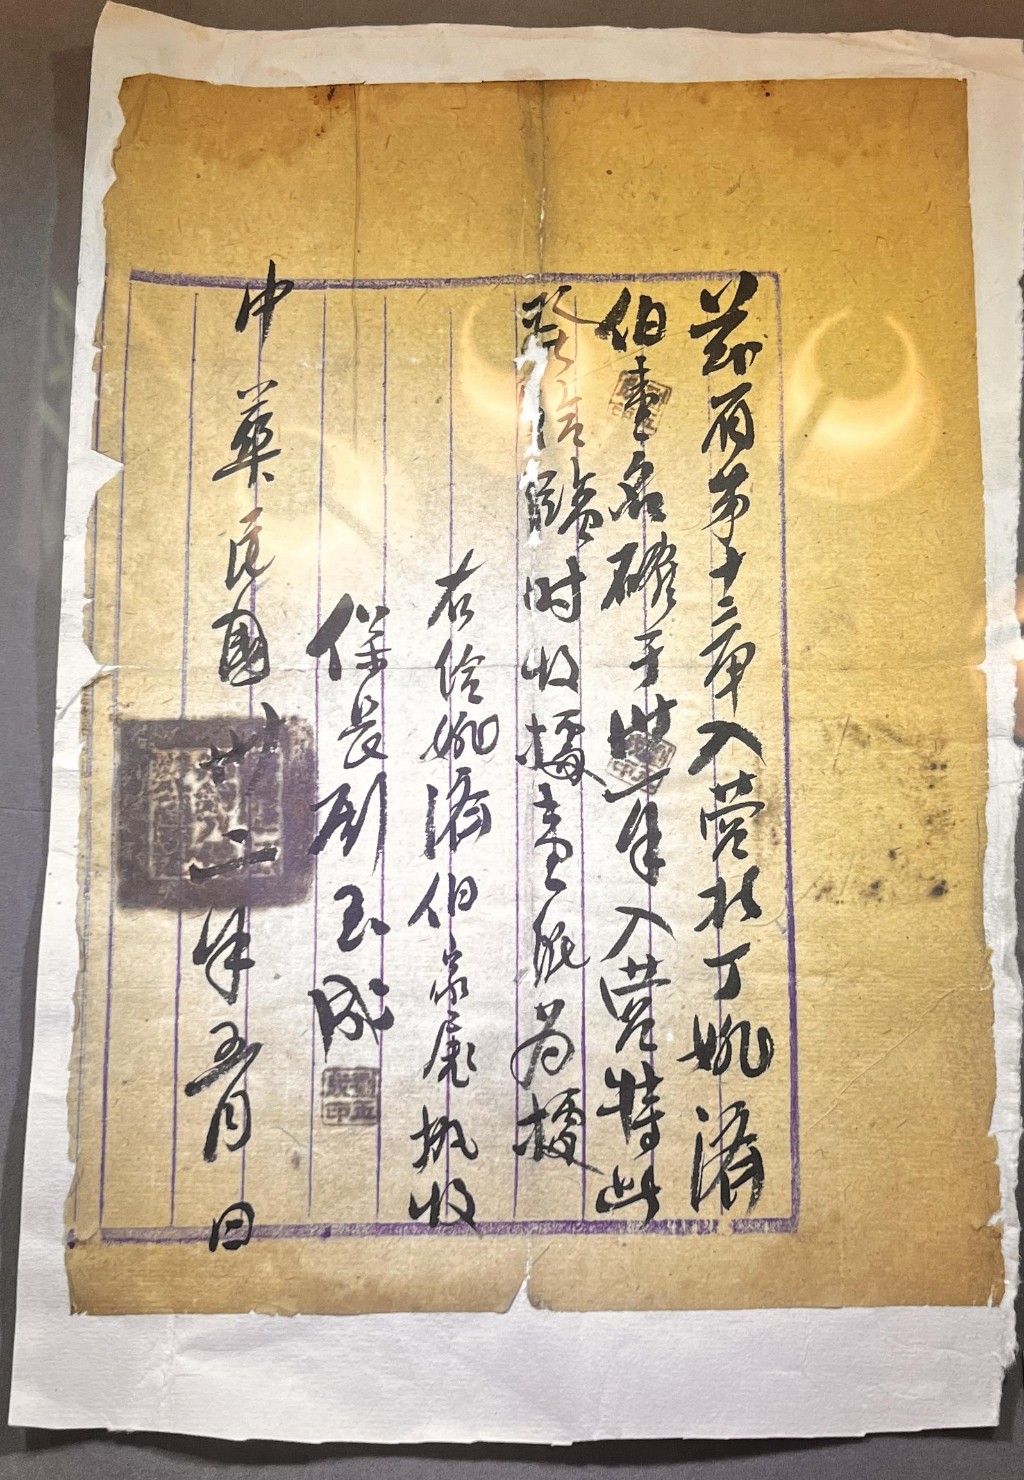 茲有第十三甲入營壯丁姚濟
伯壹名確于卅一年入營特此
發給臨时收據壹紙为據
右給姚濟伯家屬执收
保長刘玉成
中華民國卅二年五月 日